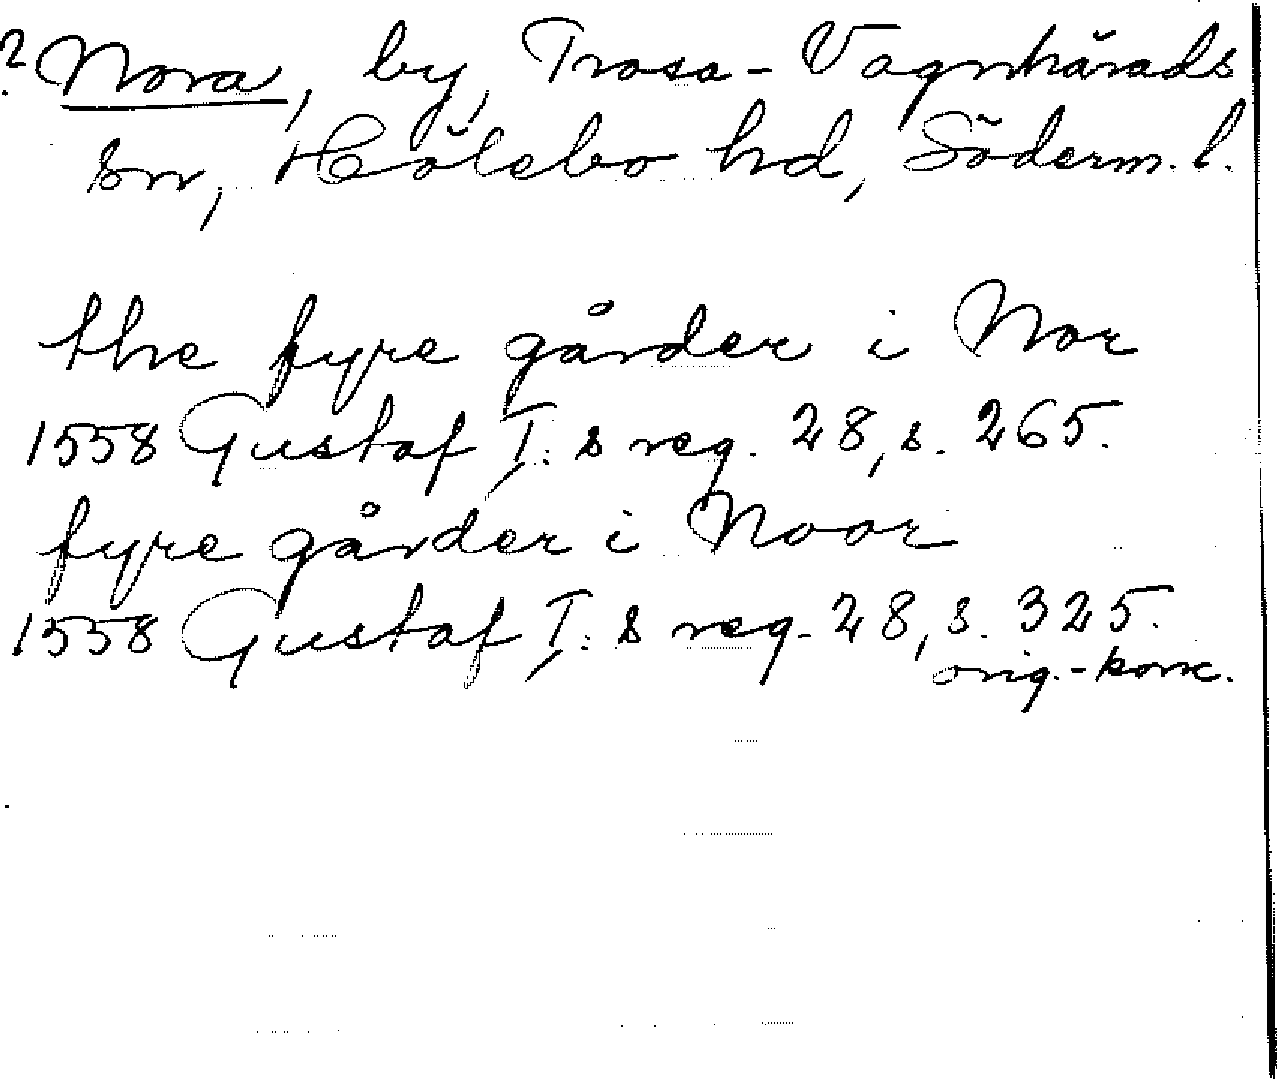 ? Nora, by, Trosa-Vagnhärads
sn, Hölebo hd, Söderm. l.
the fyre gårder i Nor
1558 Gustaf I:s reg. 28, s. 265.
fyre gårder i Noor
1558 Gustaf I:s reg. 28, s. 325.
orig.-konc.